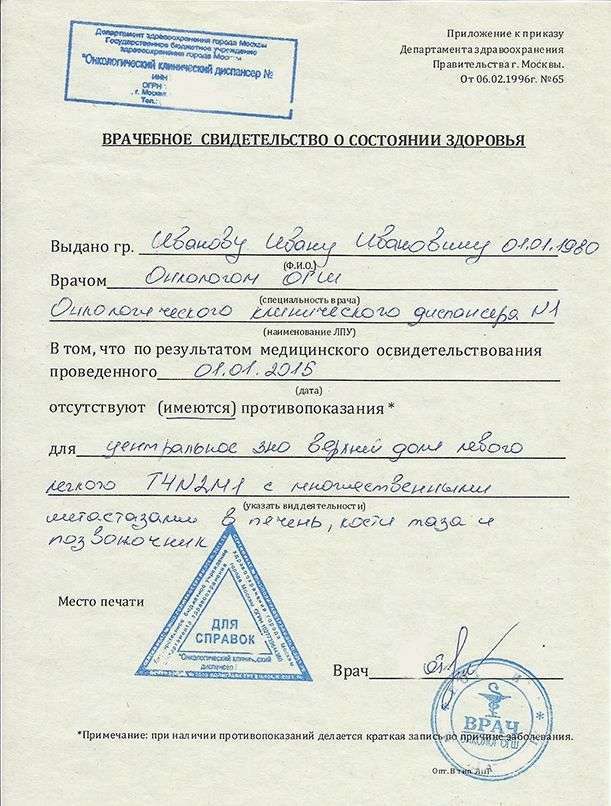 Департамент здравоохранения города Москвы
Государственное бюджетное учреждение
здравоохранения города Москвы
"Онкологический клинический диспансер №
ИНН
ОГРН
г. Москва
Тел.:
Приложение к приказу
Департамента здравоохранения
Правительства г. Москвы.
От 06.02.1996г. №65
ВРАЧЕБНОЕ СВИДЕТЕЛЬСТВО О СОСТОЯНИИ ЗДОРОВЬЯ
Выдано гр. Иванову Ивану Ивановичу 01.01.1980
(Ф.И.О.)
Врачом Онкологом ОГШ
(специальность врача)
Онкологического клинического диспансера N1
(наименование ЛПУ)
В том, что по результатом медицинского освидетельствования
проведенного 01.01.2015
(дата)
отсутствуют (имеются) противопоказания *
для центральное зно верхней доли левого
легкого T4N2M1 с множественными
(указать вид деятельности)
метастазами в печень, кости таза и
позвоночник
Место печати
ДЛЯ
СПРАВОК
"Онкологический клинический
диспансер
Врач
ВРАЧ
ОНКОЛОГ ОГШ
*Примечание: при наличии противопоказаний делается краткая запись по причине заболевания.